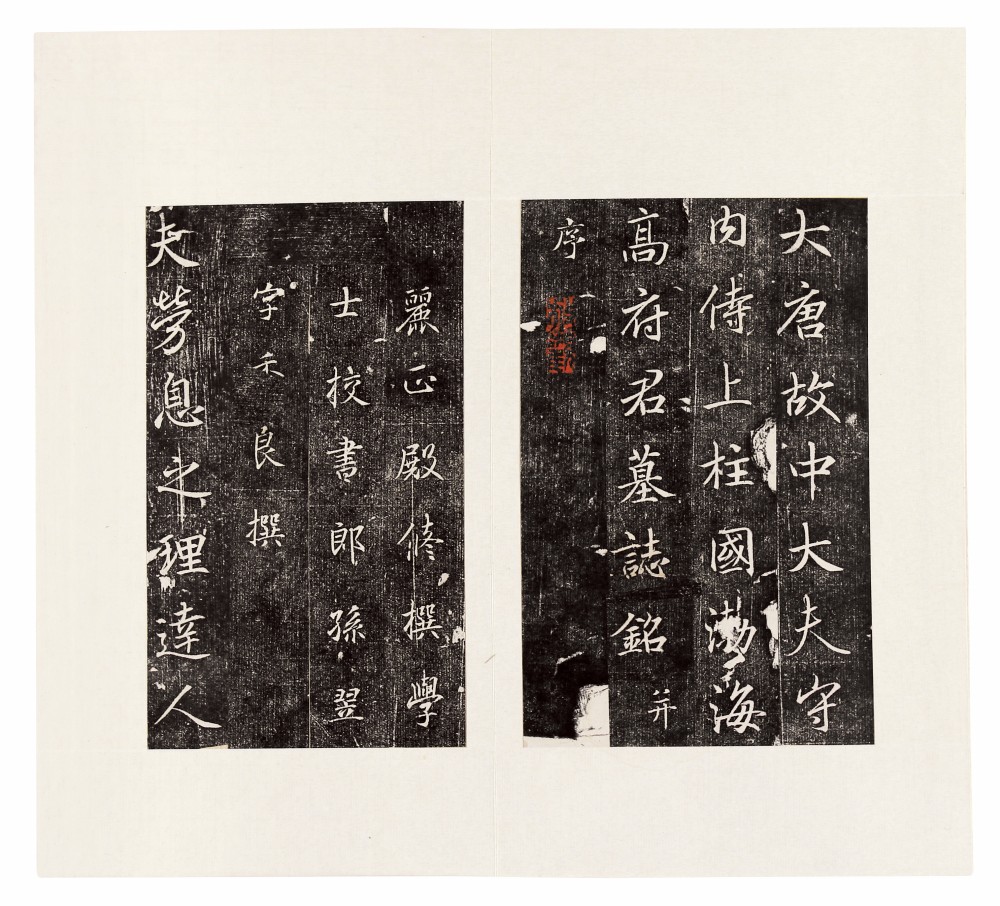 大唐故中大夫守
内侍上柱國渤海
高府君墓誌銘并
序
麗正殿修撰學
士校書郎孫翌
字禾良撰
夫勞息之理達人